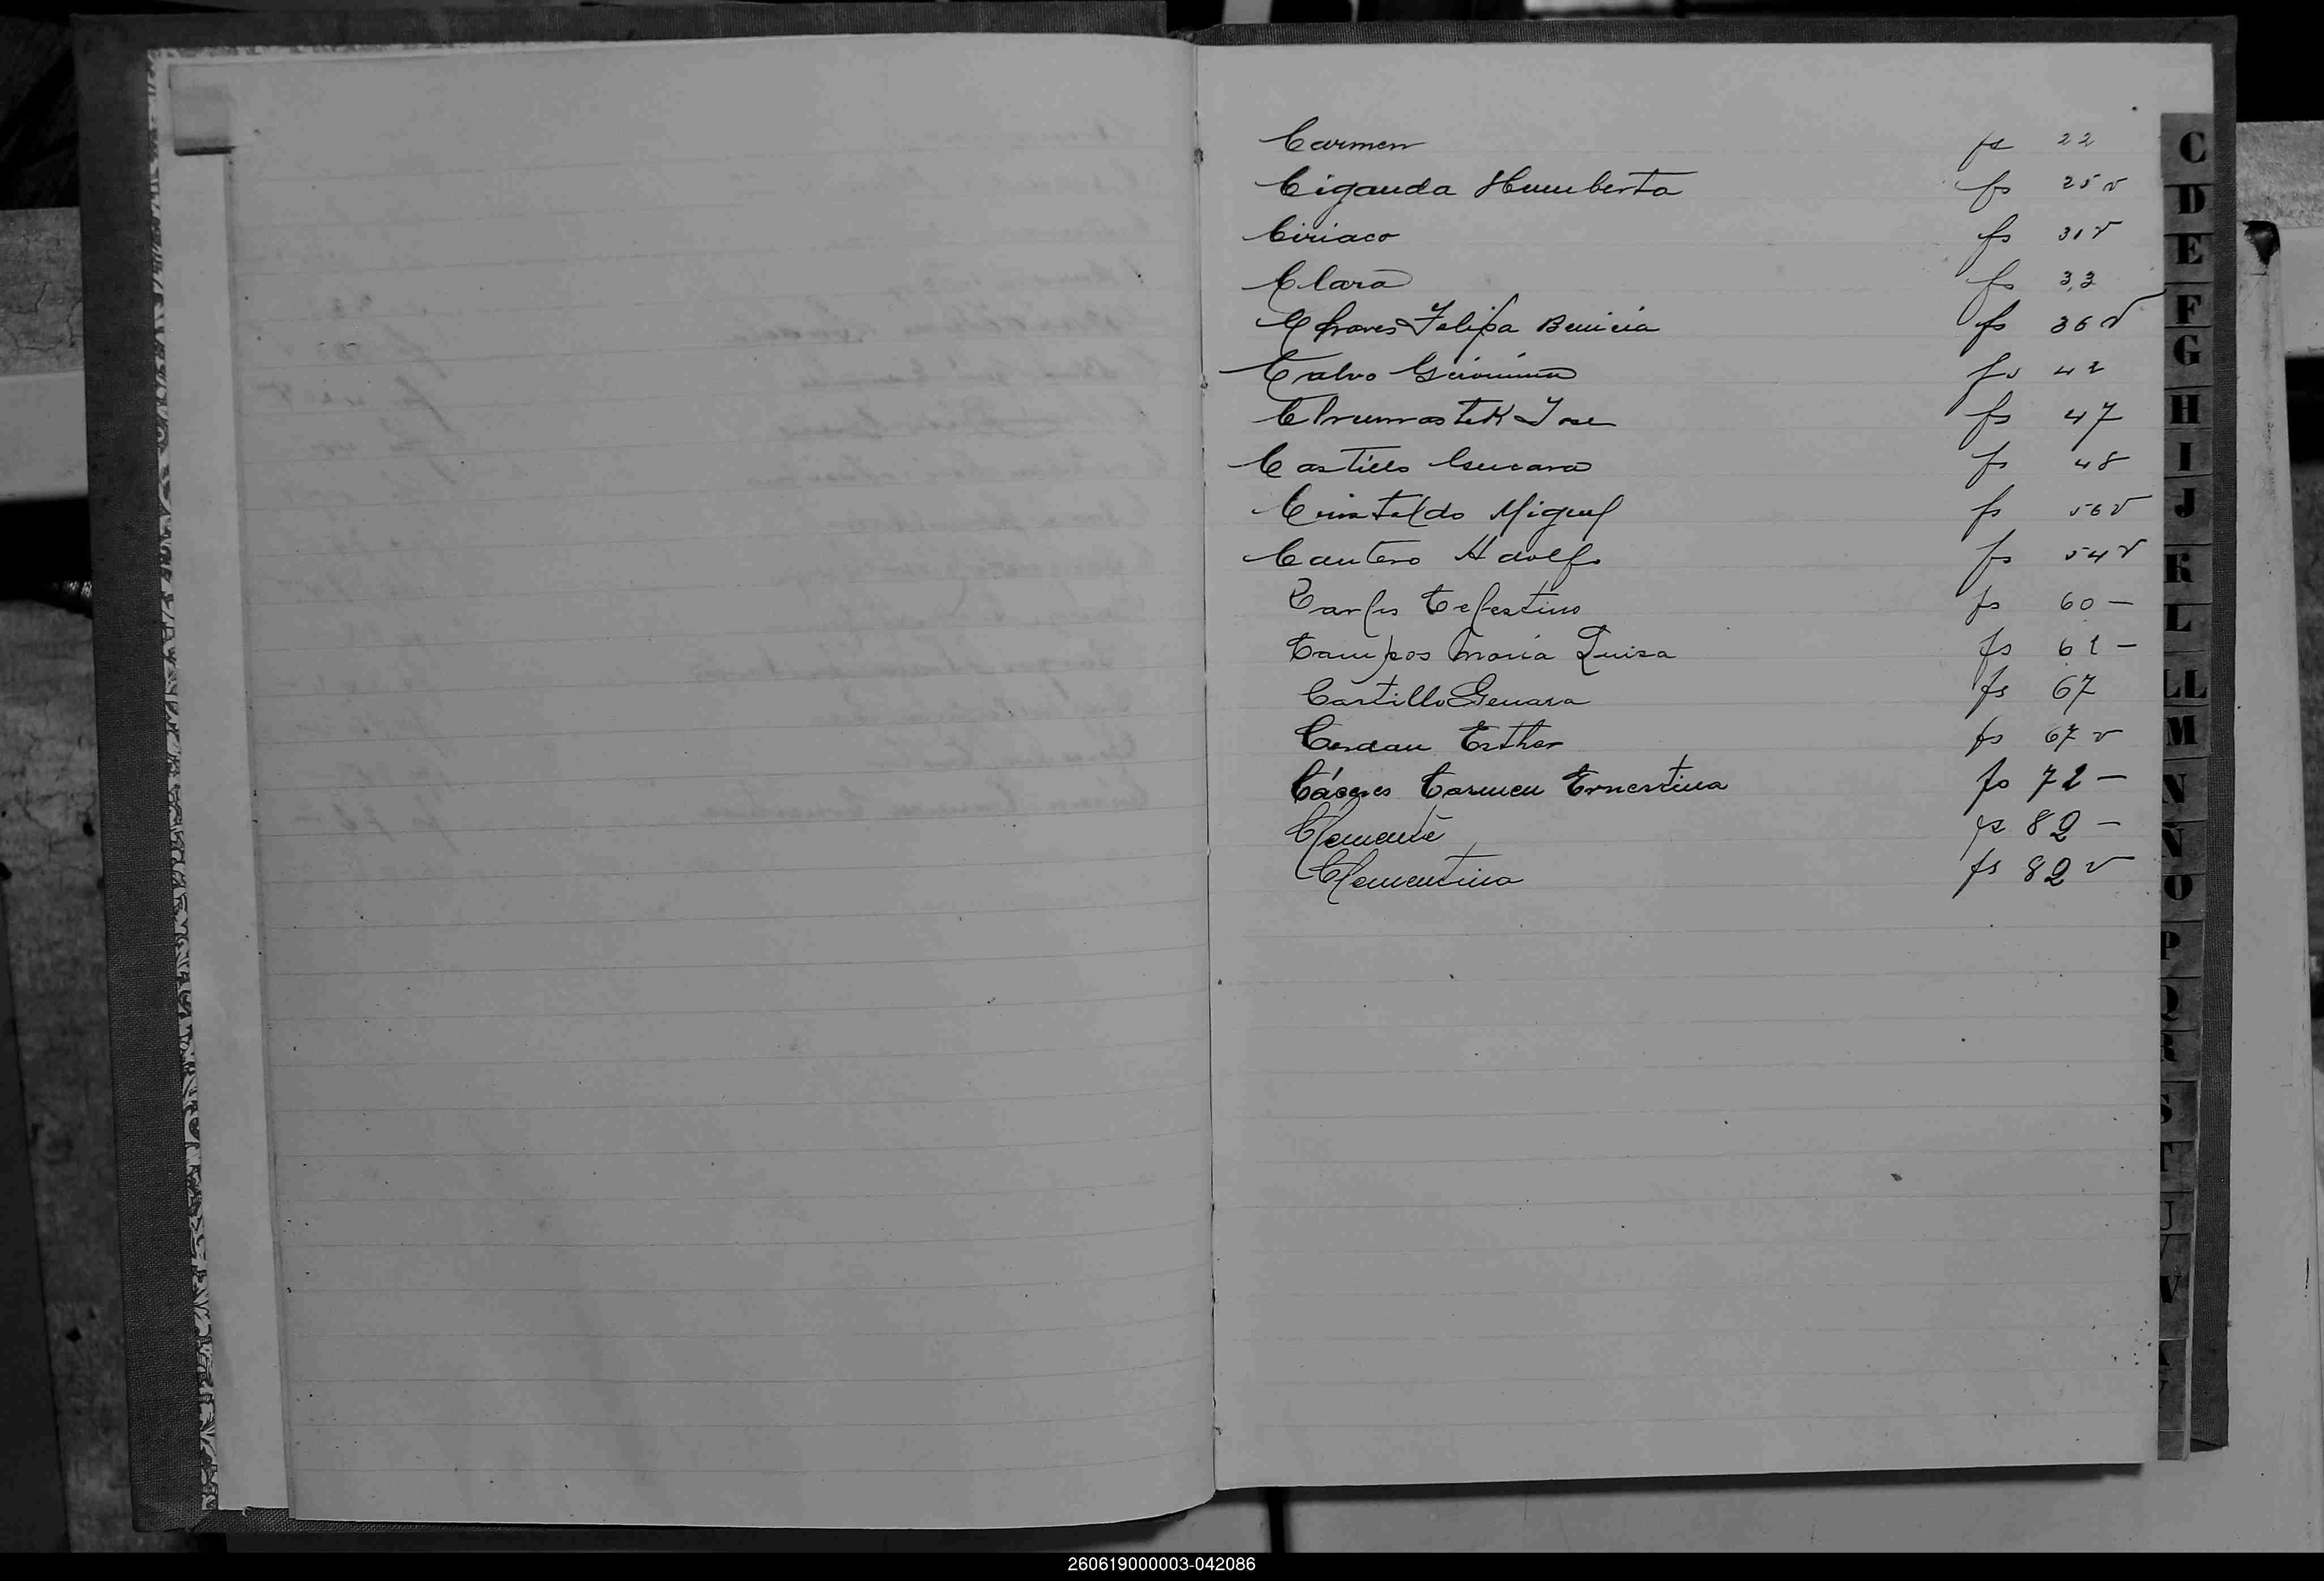 Carmen fs 22
Ciganda Humberto fs 25 v
Ciriaco fs 31 v
Clara fs 33
Felipa Benicia fs 36 v
Calvo Gerónima fs 42
José fs 47
Castillo Genara fs 48
Cristaldo Miguel fs 56 v
Cantero Adolfo fs 54 v
Carlos Celestino fs 60 —
Campos Maria Luisa fs 61 —
Castillo Genara fs 67
Cerdan Esther fs 67 v
Cáceres Carmen Ernestina fs 72 —
Clemente fs 82 —
Clementina fs 82 v
C
D
E
F
G
H
I
J
K
L
LL
M
N
Ñ
O
P
Q
R
S
T
U
V
260619000003-042086